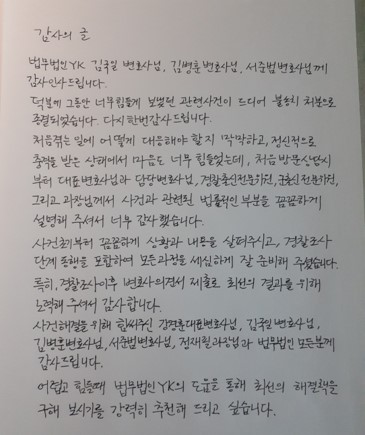 감사의 글
법무법인YK 김국일 변호사님, 김병훈변호사님, 서준범변호사님께
감사인사드립니다.
덕분에 그동안 너무힘들게 보냈던 관련사건이 드디어 불송치 처분으로
종결되었습니다. 다시한번감사드립니다.
처음겪는 일에 어떻게 대응해야 할지 막막하고, 정신적으로
충격을 받은 상태에서 마음도 너무 힘들었는데, 처음 방문상담시
부터 대표변호사님과 담당변호사님, 경찰출신전문위원, 군출신 전문위원,
그리고 과장님께서 사건과 관련된 법률적인 부분을 꼼꼼하게
설명해 주셔서 너무 감사했습니다.
사건초기부터 꼼꼼하게 상황과 내용을 살펴주시고, 경찰조사
단계 동행을 포함하여 모든과정을 세심하게 잘 준비해 주셨습니다.
특히, 경찰조사이후 변호사의견서 제출로 최선의 결과를 위해
노력해 주셔서 감사합니다.
사건해결을 위해 힘써주신 강경훈대표변호사님, 김국일변호사님,
김병훈변호사님, 서준범변호사님, 과장님과 법무법인 모든분께
감사드립니다.
어렵고 힘들때 법무법인YK의 도움을 통해 최선의 해결책을
구해 보시기를 강력히 추천해 드리고 싶습니다.